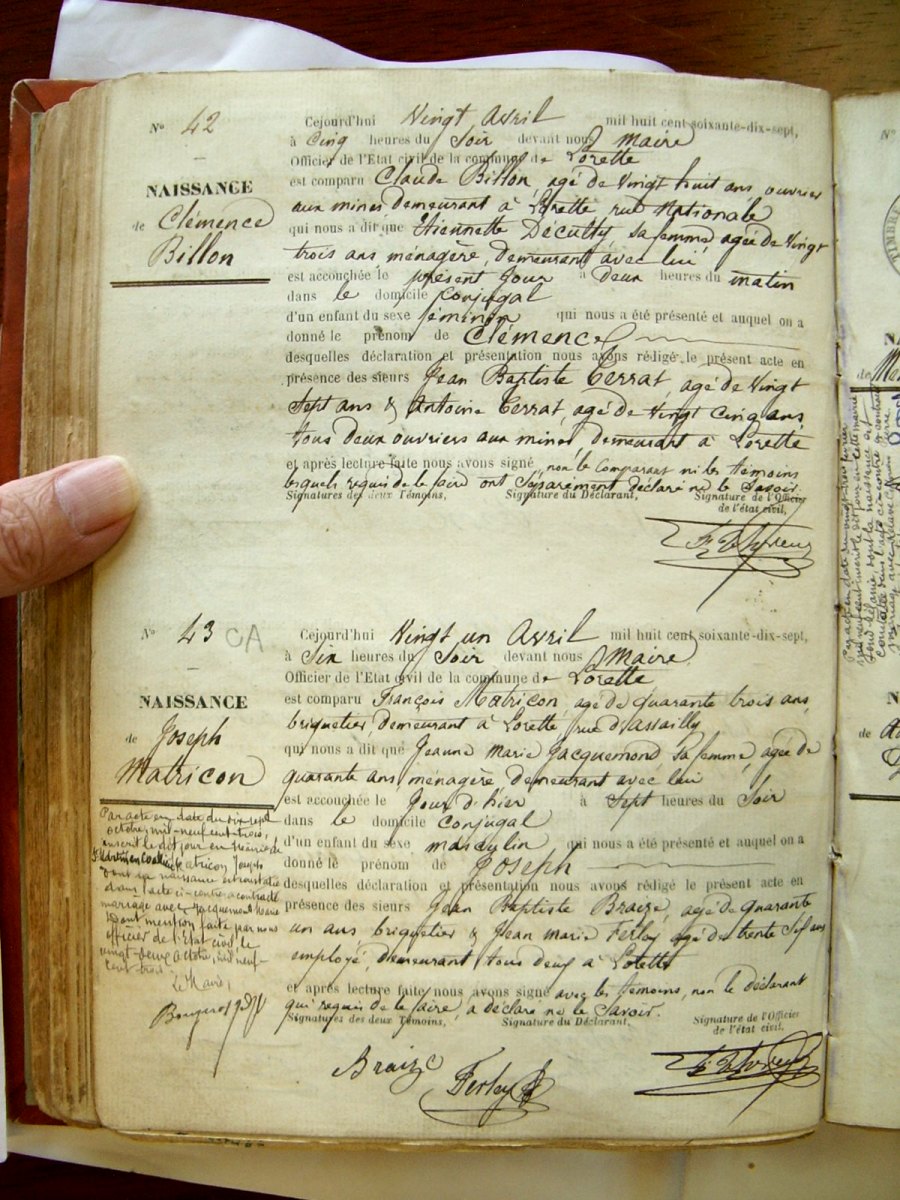 N° 42
NAISSANCE
de Clémence
Billon
Cejourd'hui Vingt Avril mil huit cent soixante-dix-sept,
à Cinq heures du Soir devant nous Maire
Officier de l'Etat civil de la commune de Lorette
est comparu Claude Billon, agé de Vingt huit ans, ouvrier
aux mines, demeurant à Lorette, rue Nationale
qui nous a dit que Décultty, sa femme, agée de Vingt
trois ans ménagère, demeurant avec lui
est accouchée le présent Jour à deux heures du matin
dans le domicile conjugal
d'un enfant du sexe féminin qui nous a été présenté et auquel on a
donné le prénom de Clémence
desquelles déclaration et présentation nous avons rédigé le présent acte en
présence des sieurs Jean Baptiste Terrat agé de Vingt
Sept ans & Antoine Terrat, agé de Vingt Cinq ans,
tous deux ouvriers aux mines demeurant à Lorette
et après lecture faite nous avons signé, non le Comparant ni les témoins
lesquels requis de le faire ont Séparément déclaré ne le Savoir.
Signatures des deux Témoins, Signature du Déclarant, Signature de l'Officier
de l'état civil,
N° 43 CA
NAISSANCE
de Joseph
Matricon
Cejourd'hui Vingt un Avril mil huit cent soixante-dix-sept,
à Six heures du Soir devant nous Maire
Officier de l'Etat civil de la commune de Lorette
est comparu François Matricon, agé de quarante trois ans,
briquetier, demeurant à Lorette, rue d'assailly
qui nous a dit que Jeanne Marie Jacquemond, sa femme, agée de
quarante ans, ménagère demeurant avec lui
est accouchée le Jour d'hier à Sept heures du Soir
dans le domicile conjugal
d'un enfant du sexe masculin qui nous a été présenté et auquel on a
donné le prénom de Joseph
desquelles déclaration et présentation nous avons rédigé le présent acte en
présence des sieurs Jean Baptiste Braize, agé de quarante
un ans briquetier & Jean Marie Ferley agé de trente Six ans
employé, demeurant tous deux à Lorette
et après lecture faite nous avons signé avec les témoins, non le déclarant
qui requis de le faire, a déclaré ne le Savoir.
Signatures des deux Témoins, Signature du Déclarant, Signature de l'Officier
de l'état civil.
Braize
Ferley
Par acte en date du dix sept
octobre, mil-neuf cent-trois,
inscrit le dit jour en mairie de
St Martin en Coailleux, Matricon Joseph
dont la naissance est constatée
dans l'acte ci-contre a contracté
mariage avec Jacquemont Marie
Dont mention faite par nous
officier de l'état civil le
vingt-deux octobre, mil neuf-
cent trois
Le Maire,